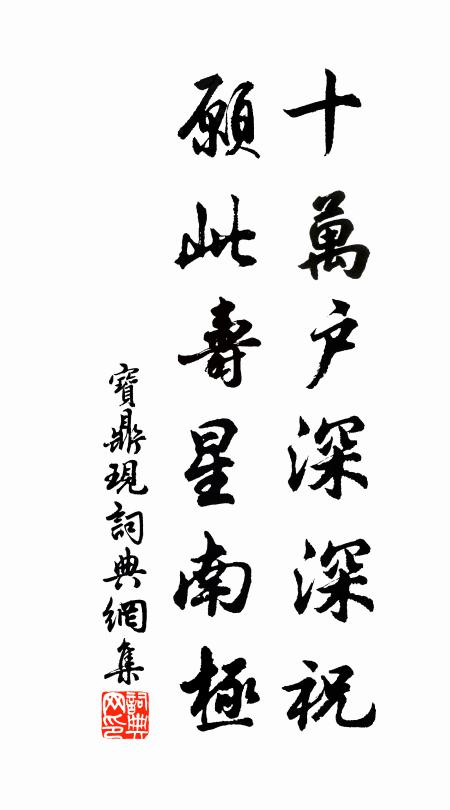 十萬戶深深祝
願此壽星南極
寶鼎現詞典網集
詞典網印